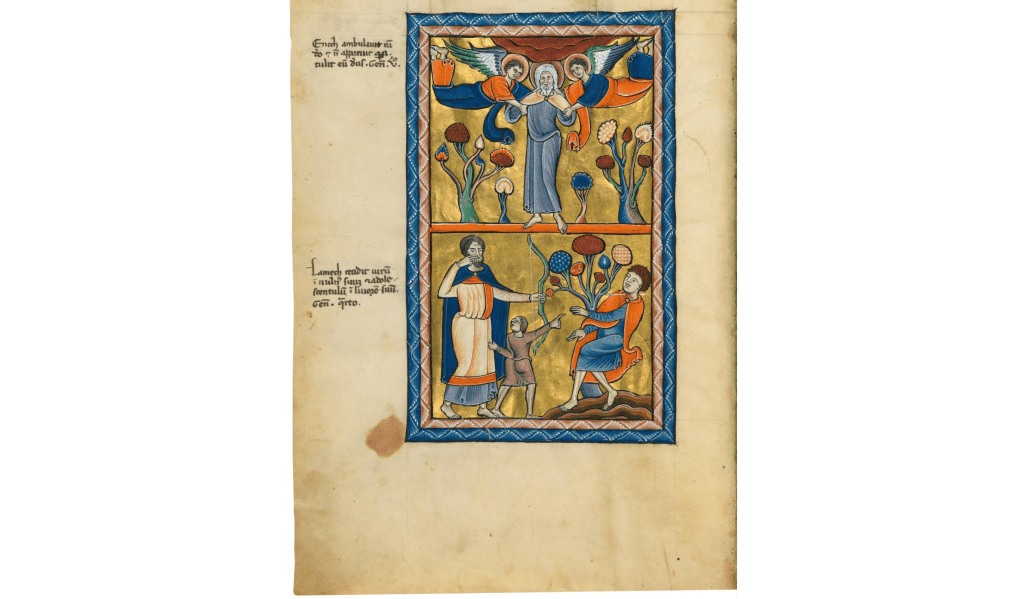 Enoch ambulauit cū
do ⁊ ñ apparuit q̄a
tulit eū dñs. Geñ. v̊.
Lamech occidit uirū
ī uulñ suū ⁊ adole
scentulū ī liuorē suū.
Geñ. q̄rto.